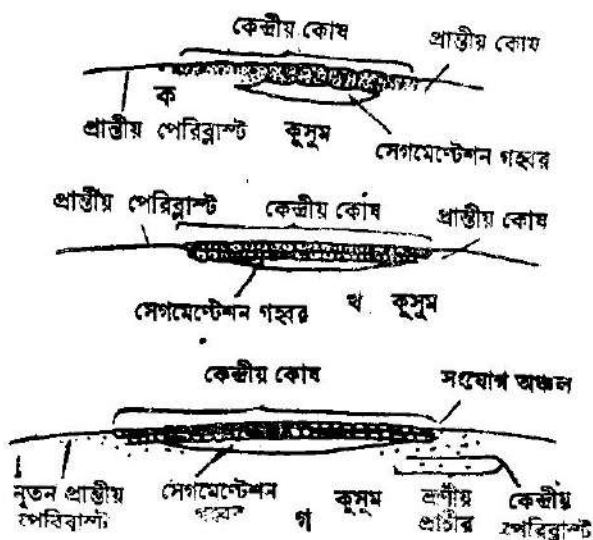 কেন্দ্রীয় কোষ
প্রান্তীয় কোষ
ক
প্রান্তীয় পেরিব্লাস্ট
কুসুম
সেগমেণ্টেশন গহ্বর
প্রান্তীয় পেরিব্লাস্ট
কেন্দ্রীয় কোষ
প্রান্তীয় কোষ
সেগমেণ্টেশন গহ্বর
খ
কুসুম
কেন্দ্রীয় কোষ
সংযোগ অঞ্চল
নূতন প্রান্তীয়
পেরিব্লাস্ট
সেগমেণ্টেশন
গহ্বর
গ
কুসুম
ভ্রূণীয়
প্রাচীর
কেন্দ্রীয়
পেরিব্লাস্ট